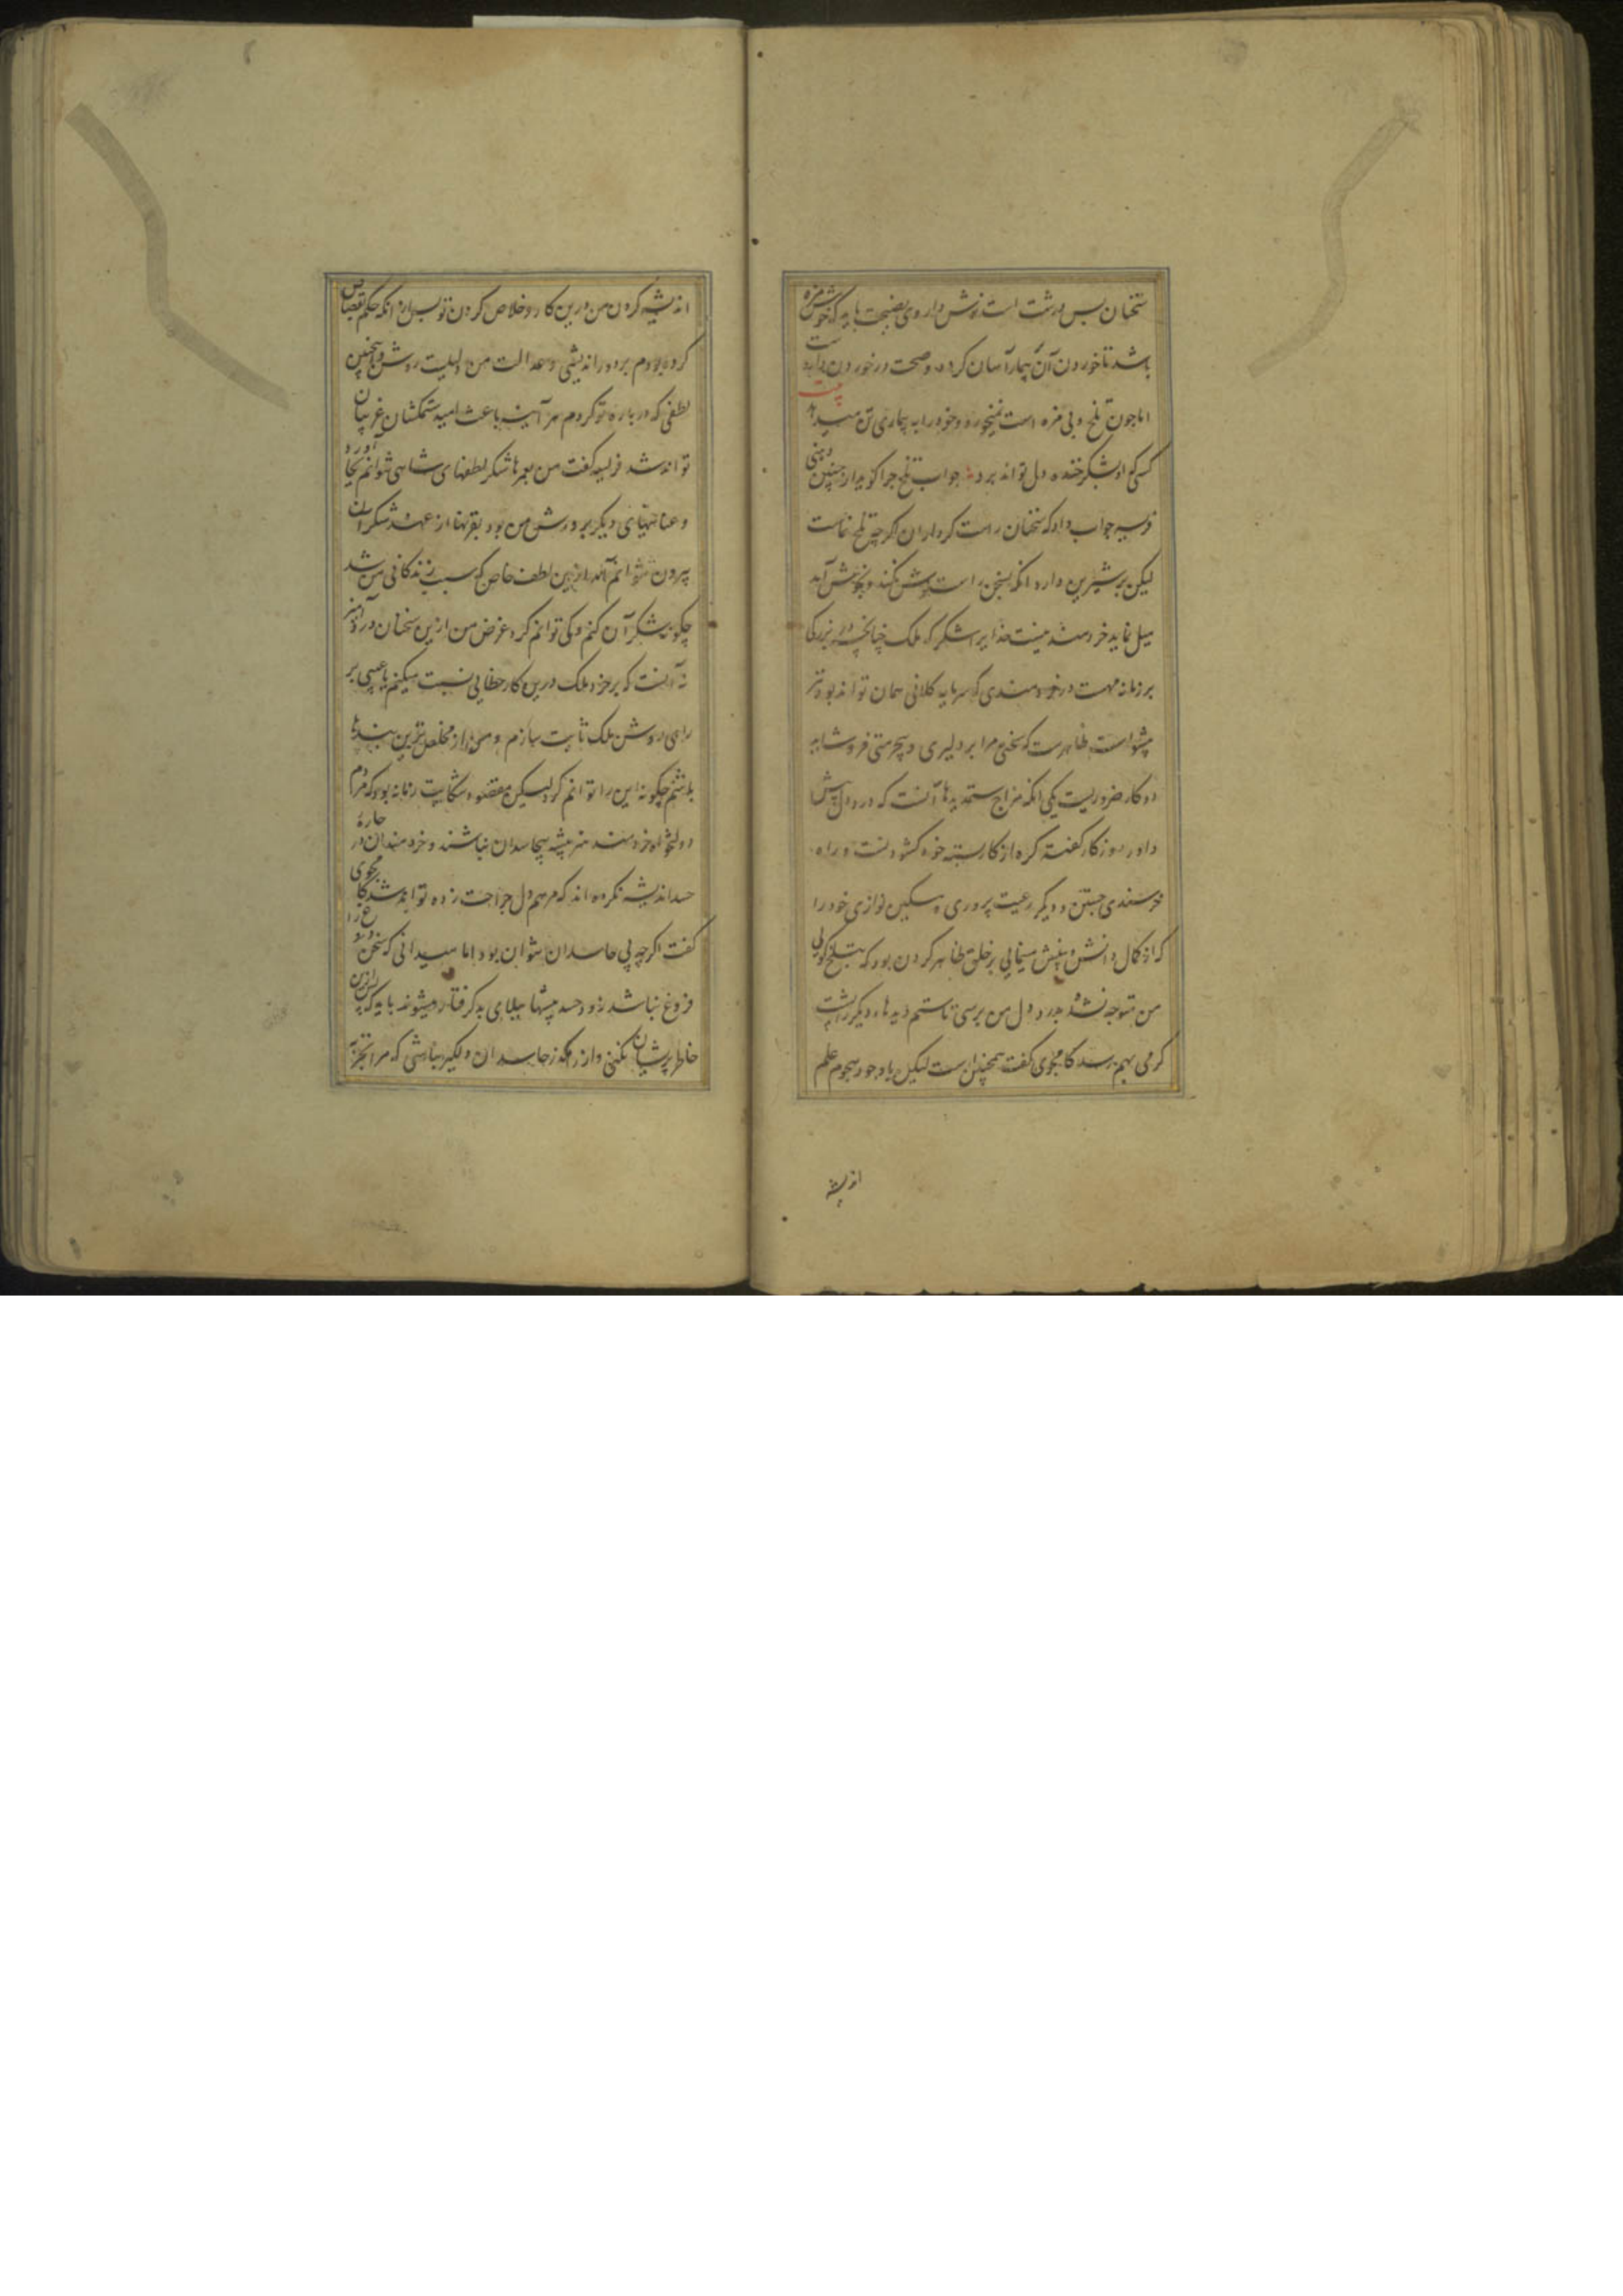 سخنان بس درشت است نوش داروی نصیحت باید که خوش مزه
باشد تا خوردن آن بیمار آسان کردد و صحت در خوردن دانسته
اما چون تلخ و بی مزه است نمیخورد و خود را به بیماری تن میدهد بیت
کسی کو بشکر خنده دل تواند برد جواب تلخ چرا کوید از چنین دهنی
فریسه جواب داد که سخنان راست کرداران اکرچه تلخ نماست
لیکن بر شیرین دارد انکه بسخن راست کوش نکند و بخوشآمد
میل نماید خردمند نیست خدایرا شکر که ملک چنانچه در بزرکی
بر زمانه مهت در خردمندی که سرمایه کلانی همان تواند بود نیز
پیشواست ظاهرست که سخن مرا بر دلیری و بیحرمتی فرو
دو کار ضروریست یکی انکه مزاج ستمدیدها آنست که درد دل پیش
داور روزکار کفته کره از کار بسته خود کشودنست و راه
خرسندی جستن و دیکر رعیت پروری و مسکین نوازی خود را
که از کمال دانش و بینش مینمایی بر خلق ظاهر کردن بود که بتلخ کویی
من متوجه نشده بدرد دل من برسی تا ستم دیدها دیکر را پشت
کرمی بهم رسد کامجوی کفت همچنان است لیکن باوجود هجوم علم
اندیشه
اندیشه کردن من درین کار و خلاص کردن تو پس از انکه حکم قصاص
کرده بودم بر دوراندیشی و عدالت من دلیلیست روشن و همچنین
لطفی که درباره تو کردم هر آینه باعث امید ستمکشان غریبان
تواند شد فریسه کفت من بعمرها شکر لطفهای شاهی نتوانم بجا آورد
و عنایتهای دیکر بر دوش من بود بقرنها از عهده شکر آن
بیرون نتوانم آمد ازین لطف خاص که سبب زندکانی من شد
چکونه شکر آن کنم و کی توانم کرد و غرض من ازین سخنان درد آمیز
نه آنست که بر خرد ملک درین کار خطایی نسبت میکنم یا عیبی بر
رای روشن ملک ثابت سازم و من از مخلص ترین بندها
باشم چکونه این را توانم کرد لیکن مقصود شکایت زمانه بود که مردم
دولتخواه خردمند هنر پیشه بیحاسدان نباشند و خردمندان در چاره
حسد اندیشه نکرده اند که مرهم دل جراحت زده تواند شد کامجوی
کفت اکرچه بی حاسدان نتوان بود اما میدانی که سخن دروغ را
فروغ نباشد زود حسد پیشها ببلای بد کرفتار میشوند باید که ازین
خاطر پریشان نکنی و از رهکذر حاسدان دلکیر نباشی که مرا